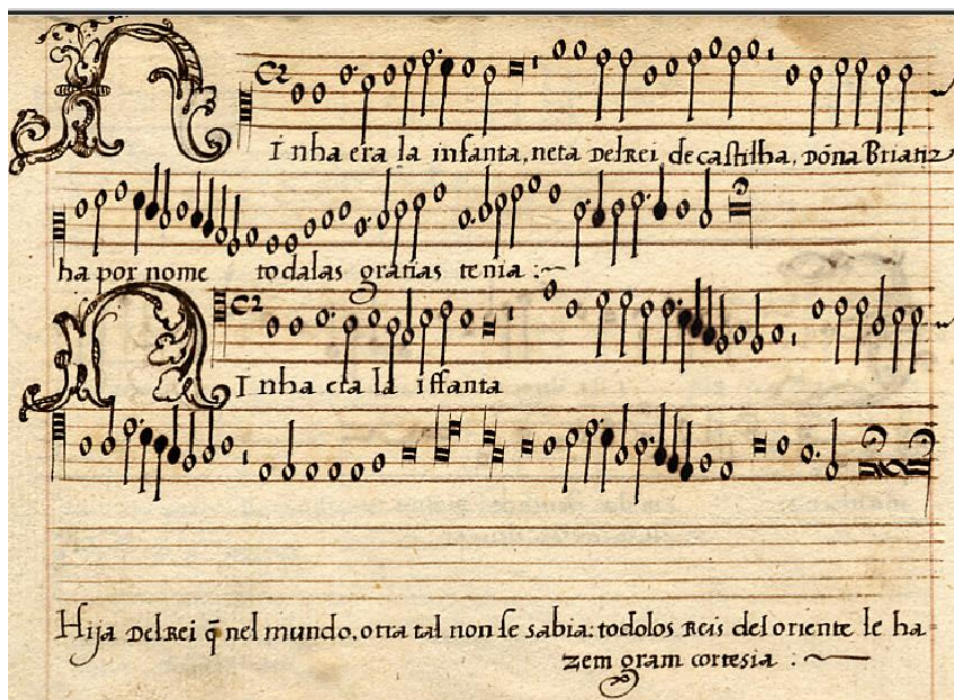 Ninha era la infanta, neta delRei de castilha, dóna Briatiz
ha por nome todalas gratias tenia :~
Ninha era la iffanta
Hija delRei q̃ nel mundo, otra tal non se sabia: todolos Reis del oriente le ha
zem gram cortesia : ~